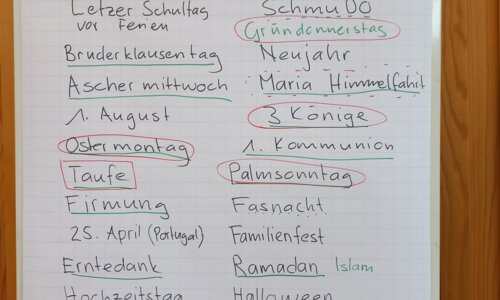 Letzer Schultag
vor Ferien
Bruderklausentag
Aschermittwoch
1. August
Ostermontag
Taufe
Firmung
25. April (Portugal)
Erntedank
Hochzeitstag
SchmuDo
Gründonnerstag
Neujahr
Maria Himmelfahrt
3 Könige
1. Kommunion
Palmsonntag
Fasnacht
Familienfest
Ramadan Islam
Halloween